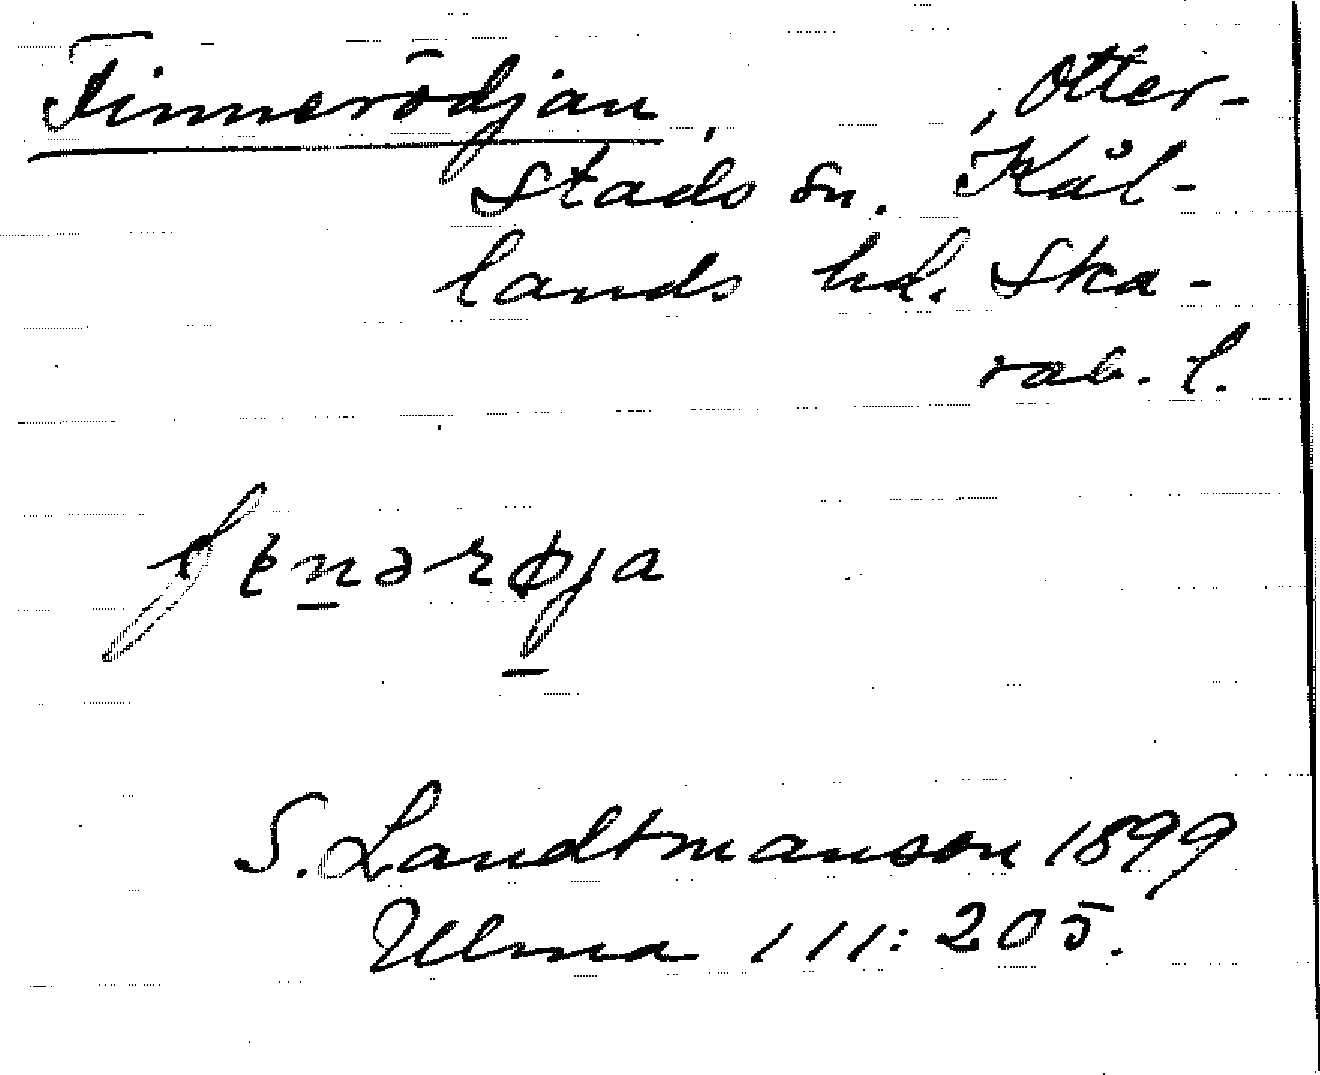 Finnerödjan, , Otter-
Stads sn. Kål-
lands hd. Ska-
rab. l.
fenərøja
S. Landtmanson 1899
Ulma 111:205.